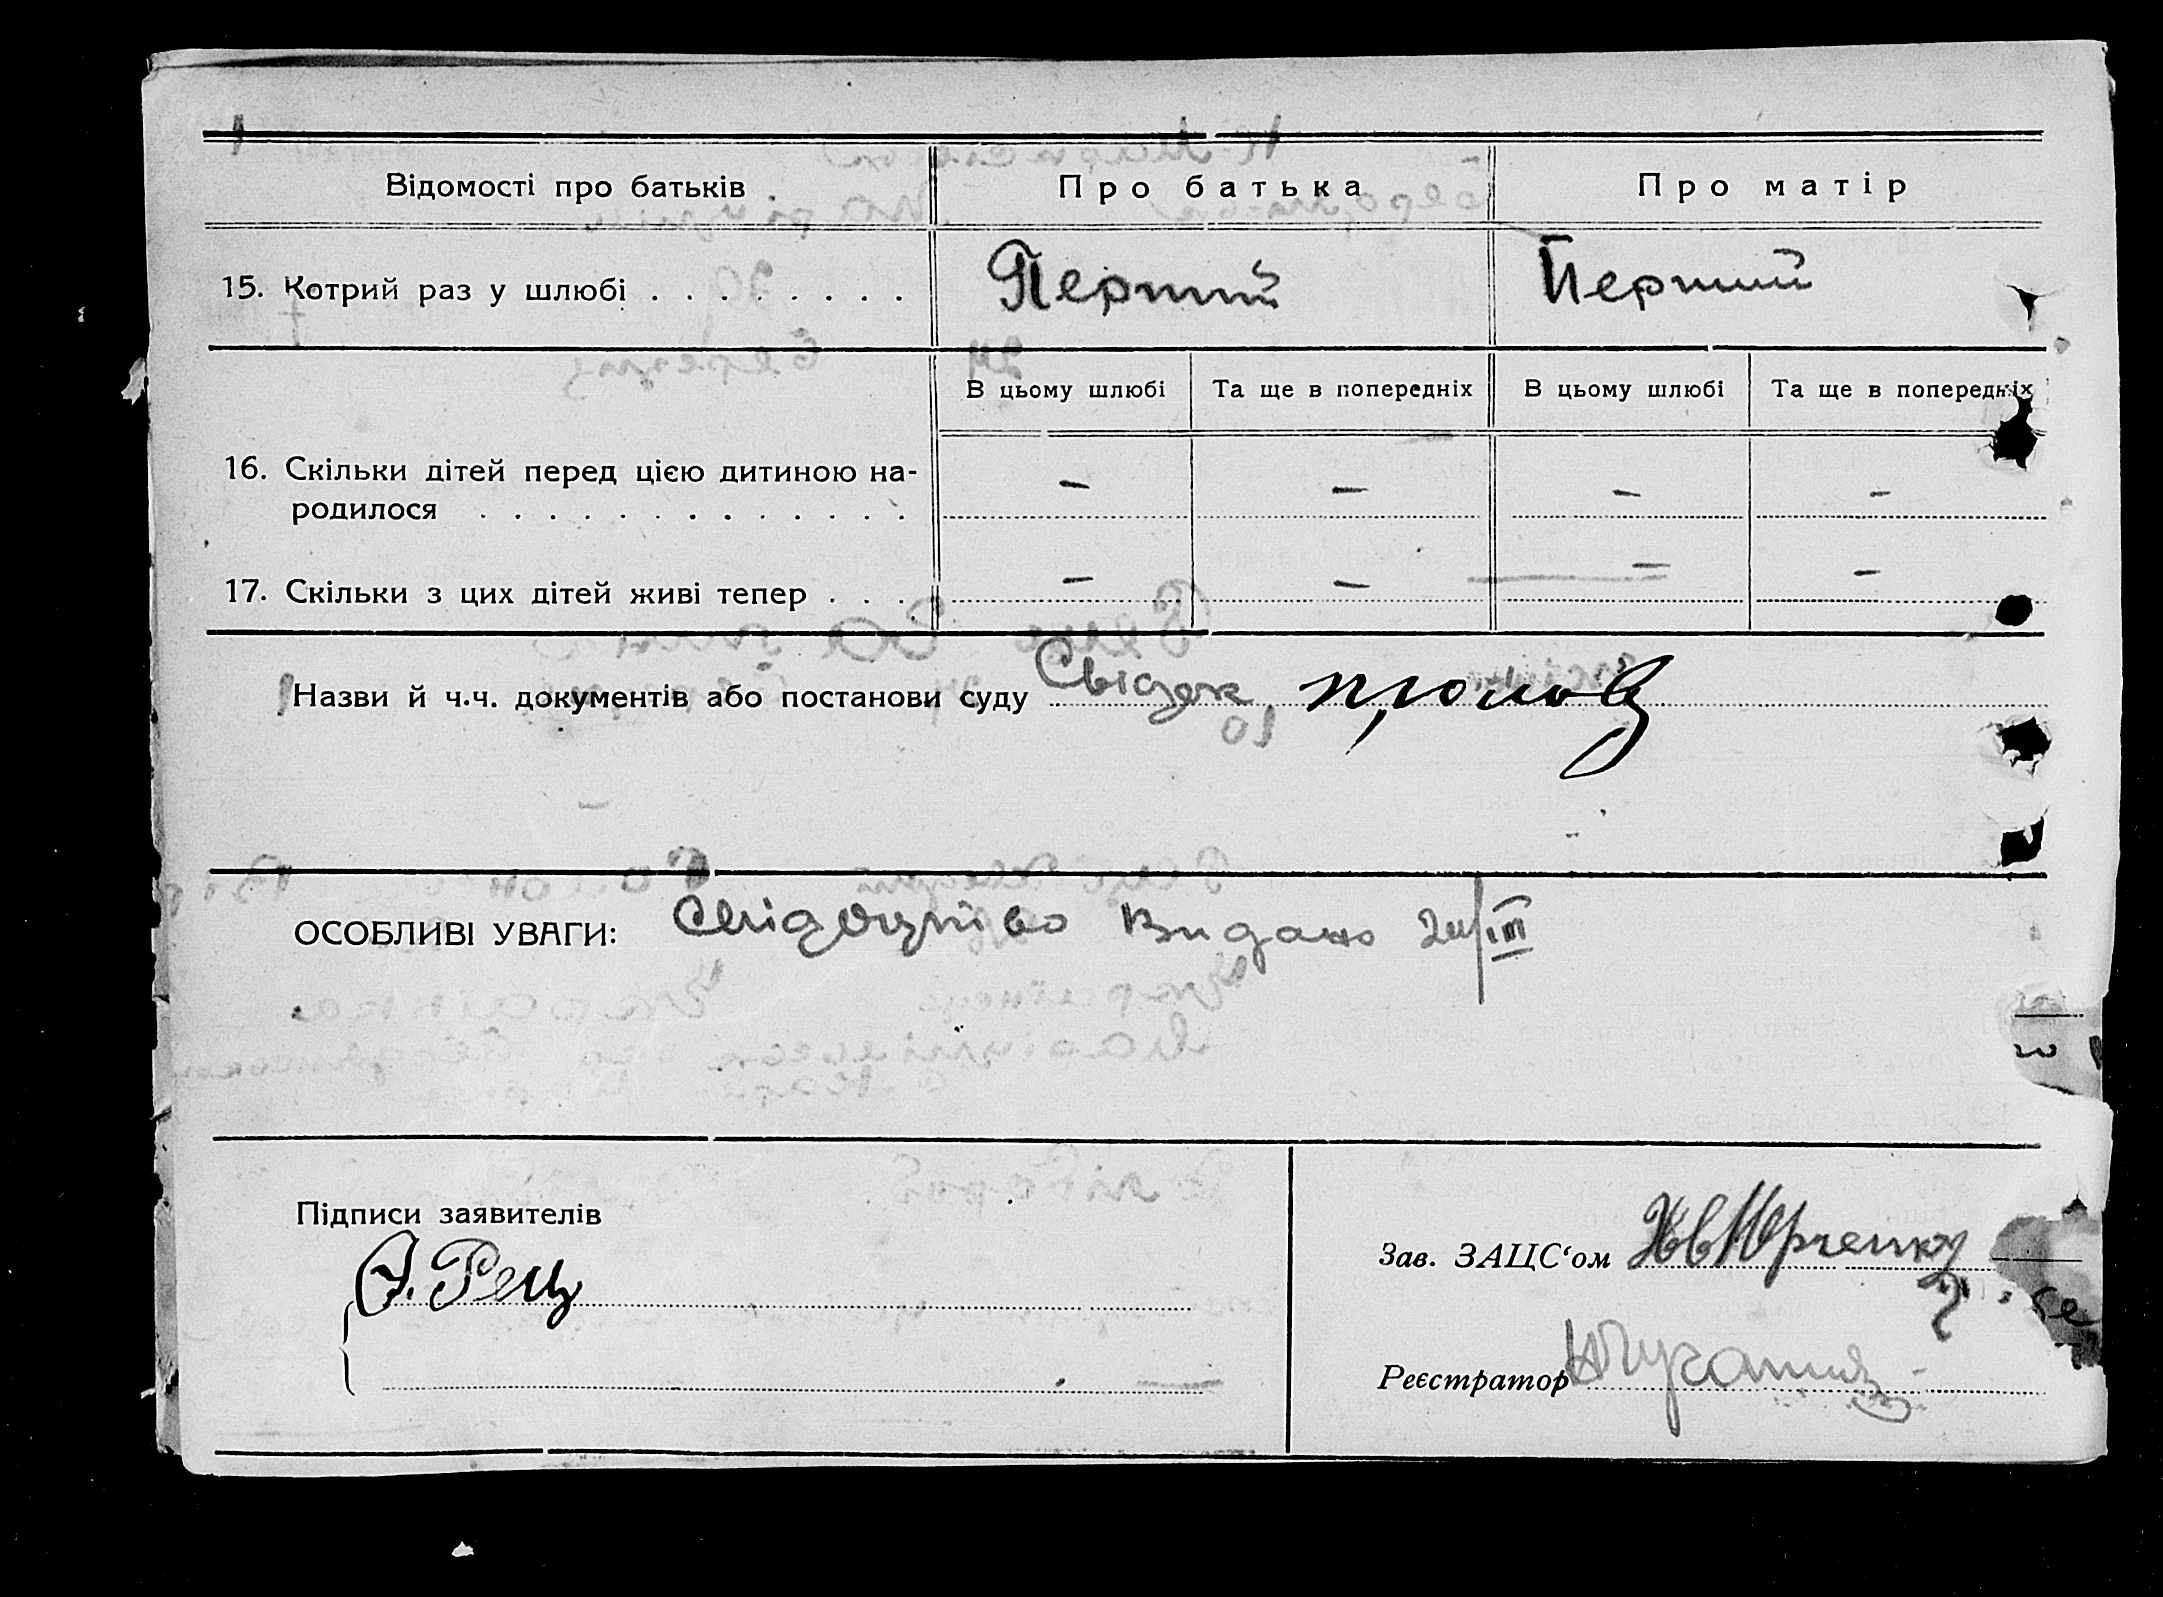 Відомості про батьків
Про батька
Про матір
15. Котрий раз у шлюбі . . . . . . . .
Перший
Перший
В цьому шлюбі
Та ще в попередніх
В цьому шлюбі
Та ще в попередніх
16. Скільки дітей перед цією дитиною на-
родилося . . . . . . . . . . . . .
– – – –
17. Скільки з цих дітей живі тепер . . . .
– – – –
Назви й ч.ч. документів або постанови суду Свідок
ОСОБЛИВІ УВАГИ: Свідоцтво Видано 24/III
Підписи заявителів
Рец
Зав. ЗАЦС‘ом
Реєстратор